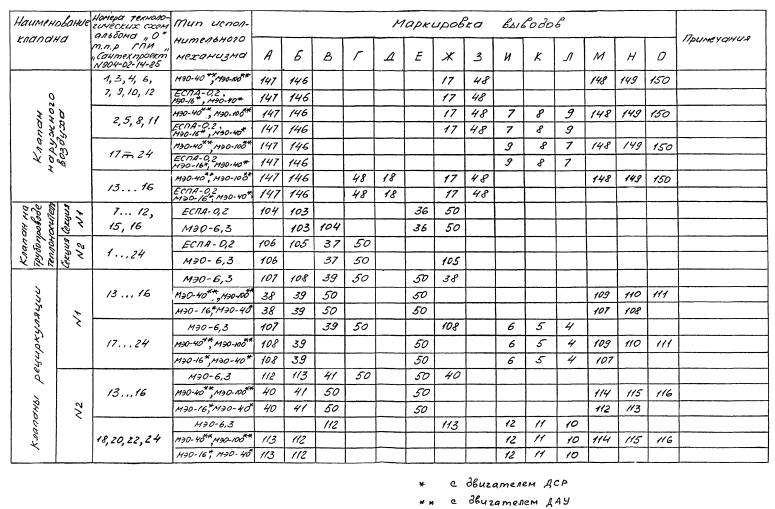 Наименование клапана | Номера технологических схем альбома „О" т.п.р ГПИ „Сантехпроект" N904-02-14-85 | Тип исполнительного механизма | Маркировка выводов | Примечания
А Б В Г Д Е Ж З И К Л М Н О
Клапан наружного воздуха
1, 3, 4, 6, 7, 9, 10, 12
МЭО-40**, МЭО-100** 147 146 17 48 148 149 150
ЕСПА-0,2; МЭО-16*, МЭО-40* 147 146 17 48
2, 5, 8, 11
МЭО-40**, МЭО-100** 147 146 17 48 7 8 9 148 149 150
ЕСПА-0,2; МЭО-16*, МЭО-40* 147 146 17 48 7 8 9
17÷24
МЭО-40**, МЭО-100** 147 146 9 8 7 148 149 150
ЕСПА-0,2 МЭО-16*, МЭО-40* 147 146 9 8 7
13...16
МЭО-40**, МЭО-100* 147 146 48 18 17 48 148 149 150
ЕСПА-0,2 МЭО-16*, МЭО-40* 147 146 48 18 17 48
Клапан на трубопроводе теплоносителя
Секция N1
7... 12, 15, 16
ЕСПА-0,2 104 103 36 50
МЭО-6,3 103 104 36 50
Секция N2
1...24
ЕСПА-0,2 106 105 37 50
МЭО-6,3 106 37 50 105
Клапаны рециркуляции
N1
13...16
МЭО-6,3 107 108 39 50 50 38
МЭО-40**, МЭО-100** 38 39 50 50 109 110 111
МЭО-16*, МЭО-40* 38 39 50 50 107 108
17...24
МЭО-6,3 107 39 50 108 6 5 4
МЭО-40**, МЭО-100** 108 39 50 6 5 4 109 110 111
МЭО-16*, МЭО-40* 108 39 50 6 5 4 107
N2
13...16
МЭО-6,3 112 113 41 50 50 40
МЭО-40**, МЭО-100** 40 41 50 50 114 115 116
МЭО-16*, МЭО-40* 40 41 50 50 112 113
18,20,22,24
МЭО-6,3 112 113 12 11 10
МЭО-40**, МЭО-100** 113 112 12 11 10 114 115 116
МЭО-16*, МЭО-40 113 112 12 11 10
* с двигателем ДСР
** с двигателем ДАУ